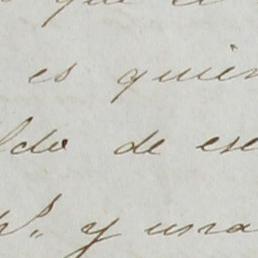 que
es quien
ldo de ese
p.r y una